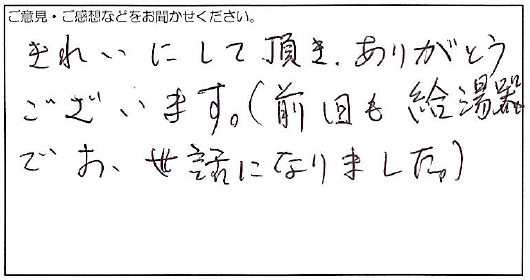 ご意見・ご感想などをお聞かせください。
きれいにして頂き、ありがとう
ございます。(前回も給湯器
でお世話になりました。)